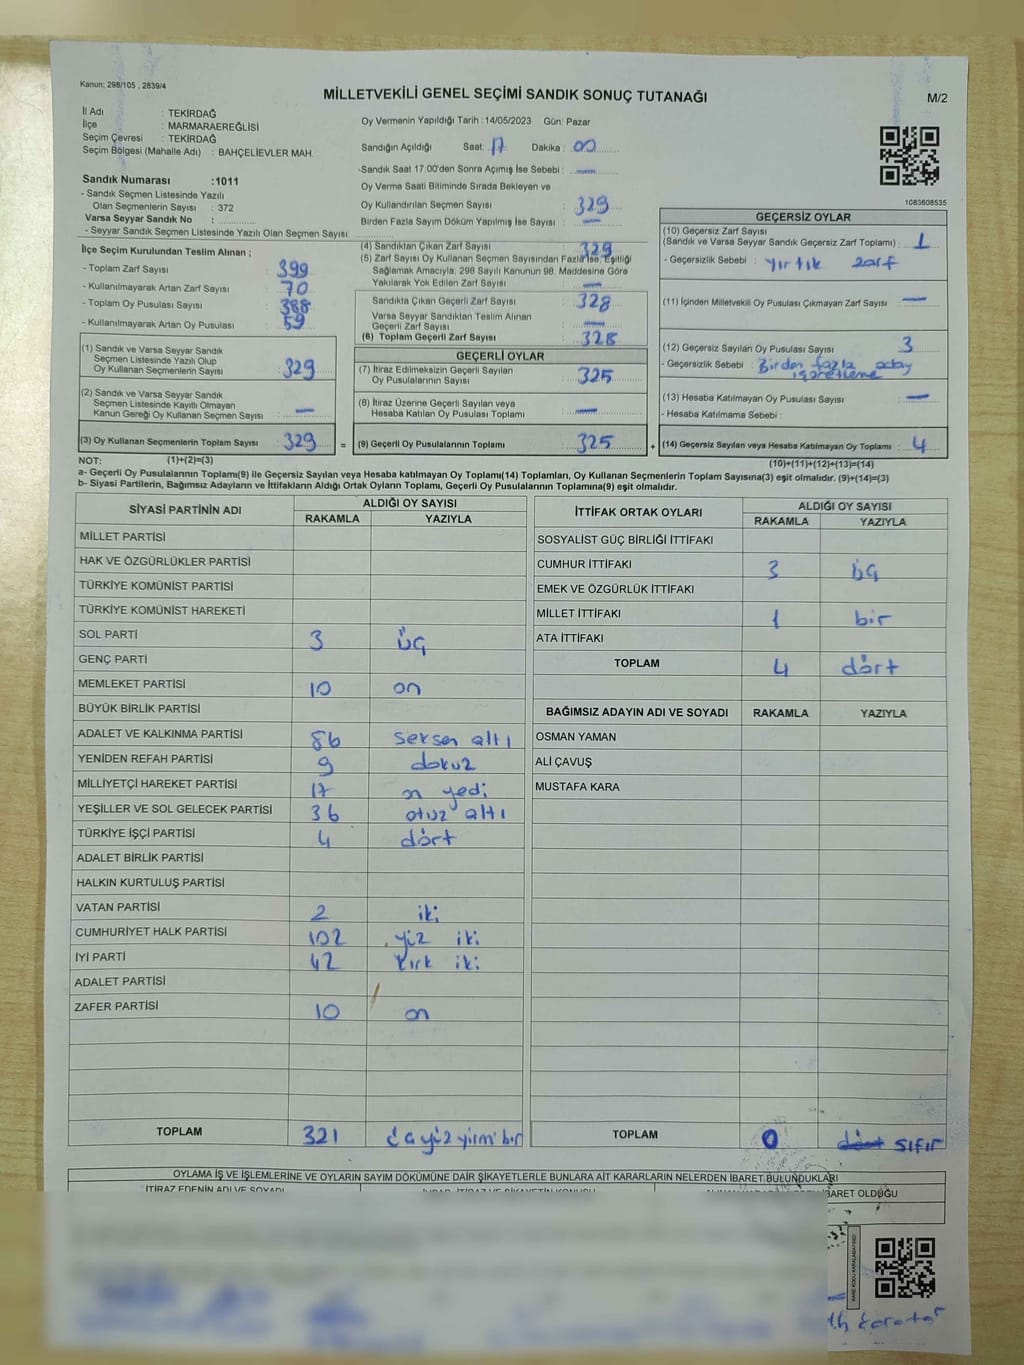 Kanun: 298/105 , 2839/4
MİLLETVEKİLİ GENEL SEÇİMİ SANDIK SONUÇ TUTANAĞI
M/2
İl Adı : TEKİRDAĞ
İlçe : MARMARAEREĞLİSİ
Seçim Çevresi : TEKİRDAĞ
Seçim Bölgesi (Mahalle Adı) : BAHÇELİEVLER MAH.
Sandık Numarası :1011
- Sandık Seçmen Listesinde Yazılı
Olan Seçmenlerin Sayısı : 372
Varsa Seyyar Sandık No :
- Seyyar Sandık Seçmen Listesinde Yazılı Olan Seçmen Sayısı:
Oy Vermenin Yapıldığı Tarih :14/05/2023 Gün: Pazar
Sandığın Açıldığı Saat: 17 Dakika : 00
-Sandık Saat 17.00'den Sonra Açımış İse Sebebi : —
Oy Verme Saati Bitiminde Sırada Bekleyen ve
Oy Kullandırılan Seçmen Sayısı : 329
Birden Fazla Sayım Döküm Yapılmış İse Sayısı : —
1083608535
İlçe Seçim Kurulundan Teslim Alınan ;
- Toplam Zarf Sayısı : 399
- Kullanılmayarak Artan Zarf Sayısı : 70
- Toplam Oy Pusulası Sayısı : 388
- Kullanılmayarak Artan Oy Pusulası : 59
(1) Sandık ve Varsa Seyyar Sandık
Seçmen Listesinde Yazılı Olup
Oy Kullanan Seçmenlerin Sayısı : 329
(2) Sandık ve Varsa Seyyar Sandık
Seçmen Listesinde Kayıtlı Olmayan
Kanun Gereği Oy Kullanan Seçmen Sayısı : —
(3) Oy Kullanan Seçmenlerin Toplam Sayısı : 329 =
(4) Sandıktan Çıkan Zarf Sayısı : 329
(5) Zarf Sayısı Oy Kullanan Seçmen Sayısından Fazla İse, Eşitliği
Sağlamak Amacıyla; 298 Sayılı Kanunun 98. Maddesine Göre
Yakılarak Yok Edilen Zarf Sayısı : —
Sandıkta Çıkan Geçerli Zarf Sayısı : 328
Varsa Seyyar Sandıktan Teslim Alınan
Geçerli Zarf Sayısı : —
(6) Toplam Geçerli Zarf Sayısı : 328
GEÇERLİ OYLAR
(7) İtiraz Edilmeksizin Geçerli Sayılan
Oy Pusulalarının Sayısı : 325
(8) İtiraz Üzerine Geçerli Sayılan veya
Hesaba Katılan Oy Pusulası Toplamı : —
(9) Geçerli Oy Pusulalarının Toplamı : 325 +
GEÇERSİZ OYLAR
(10) Geçersiz Zarf Sayısı
(Sandık ve Varsa Seyyar Sandık Geçersiz Zarf Toplamı) : 1
- Geçersizlik Sebebi : yırtık zarf
(11) İçinden Milletvekili Oy Pusulası Çıkmayan Zarf Sayısı : —
(12) Geçersiz Sayılan Oy Pusulası Sayısı : 3
- Geçersizlik Sebebi : Birden fazla aday
işaretleme
(13) Hesaba Katılmayan Oy Pusulası Sayısı : —
- Hesaba Katılmama Sebebi :
(14) Geçersiz Sayılan veya Hesaba Katılmayan Oy Toplamı : 4
NOT: (1)+(2)=(3)
(10)+(11)+(12)+(13)=(14)
a- Geçerli Oy Pusulalarının Toplamı(9) ile Geçersiz Sayılan veya Hesaba katılmayan Oy Toplamı(14) Toplamları, Oy Kullanan Seçmenlerin Toplam Sayısına(3) eşit olmalıdır. (9)+(14)=(3)
b- Siyasi Partilerin, Bağımsız Adayların ve İttifakların Aldığı Ortak Oyların Toplamı, Geçerli Oy Pusulalarının Toplamına(9) eşit olmalıdır.
SİYASİ PARTİNİN ADI ALDIĞI OY SAYISI
RAKAMLA YAZIYLA
MİLLET PARTİSİ
HAK VE ÖZGÜRLÜKLER PARTİSİ
TÜRKİYE KOMÜNİST PARTİSİ
TÜRKİYE KOMÜNİST HAREKETİ
SOL PARTİ 3 üç
GENÇ PARTİ
MEMLEKET PARTİSİ 10 on
BÜYÜK BİRLİK PARTİSİ
ADALET VE KALKINMA PARTİSİ 86 seksen altı
YENİDEN REFAH PARTİSİ 9 dokuz
MİLLİYETÇİ HAREKET PARTİSİ 17 on yedi
YEŞİLLER VE SOL GELECEK PARTİSİ 36 otuz altı
TÜRKİYE İŞÇİ PARTİSİ 4 dört
ADALET BİRLİK PARTİSİ
HALKIN KURTULUŞ PARTİSİ
VATAN PARTİSİ 2 iki
CUMHURİYET HALK PARTİSİ 102 yüz iki
İYİ PARTİ 42 kırk iki
ADALET PARTİSİ
ZAFER PARTİSİ 10 on
TOPLAM 321 üç yüz yirmi bir
İTTİFAK ORTAK OYLARI ALDIĞI OY SAYISI
RAKAMLA YAZIYLA
SOSYALİST GÜÇ BİRLİĞİ İTTİFAKI
CUMHUR İTTİFAKI 3 üç
EMEK VE ÖZGÜRLÜK İTTİFAKI
MİLLET İTTİFAKI 1 bir
ATA İTTİFAKI
TOPLAM 4 dört
BAĞIMSIZ ADAYIN ADI VE SOYADI RAKAMLA YAZIYLA
OSMAN YAMAN
ALİ ÇAVUŞ
MUSTAFA KARA
TOPLAM 0 dört sıfır
OYLAMA İŞ VE İŞLEMLERİNE VE OYLARIN SAYIM DÖKÜMÜNE DAİR ŞİKAYETLERLE BUNLARA AİT KARARLARIN NELERDEN İBARET BULUNDUKLARI
İTİRAZ EDENİN ADI VE SOYADI
İBARET OLDUĞU